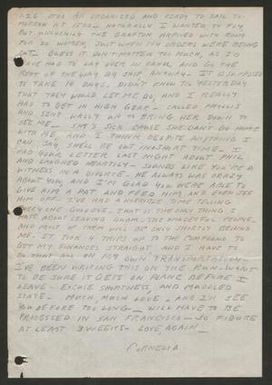 1-26 ALL AM ORGANIZED AND READY TO SAIL TO-
MORROW AT NOON. NATURALLY I WANTED TO FLY,
BUT THE GRAFTON ARRIVED WITH ROOM
FOR 30 WOMEN, JUST WHEN MY ORDERS WERE BEING
CUT. GUESS IT DON'T MATTER TOO MUCH, AS I'D
HAVE HAD TO LAY OVER IN                AND GO THE
REST OF THE WAY BY SHIP ANYWAY. IT IS SUPPOSED
TO TAKE 16 DAYS. DIDN'T KNOW TO YESTERDAY
THAT THEY WOULD LET ME GO, AND I REALLY
HAD TO GET IN HIGH GEAR - CALLED PHYLLIS
AND SENT WALLY UP TO BRING HER DOWN TO
SEE ME. SHE'S SICK CAUSE SHE CAN'T GO HOME
WITH ME, AND I THINK DESPITE ANYTHING I
CAN SAY, SHE'LL BE OUT IN SHORT TIME. I
HAD YOUR LETTER LAST NIGHT ABOUT PHIL
AND LAUGHED HEARTILY - SOUNDS LIKE YOU'RE A
WITNESS IN A DIVORCE. HE ALWAYS WAS CRAZY
ABOUT YOU, AND I'M GLAD YOU WERE ABLE TO
GIVE HIM A PAT AND FEED HIM AND EVEN SEE
HIM OFF. I'VE HAD A HORRIBLE TIME TELLING
EVERYONE GOODBYE, THAT IS THE ONLY THING I
HATE ABOUT LEAVING GUAM, THE WONDERFUL PEOPLE,
AND MOST OF THEM WILL BE ONLY SHORTLY BEHIND
ME. IT TOOK 4 TRIPS UP TO THE COMPOUND TO
GET MY FINANCES STRAIGHT AND I HAVE TO
DO THAT ALL ON MY OWN TRANSPORTATION.
I'VE BEEN WRITING THIS ON THE RUN - WANT
TO BE SURE IT GETS ON PLANE BEFORE I
LEAVE - EXCUSE SHORTNESS, AND MUDDLED
STATE. MUCH MUCH LOVE, AND I'LL SEE
YOU BEFORE TOO LONG - WILL HAVE TO BE
PROCESSED IN SAN FRANCISCO - SO FIGURE
AT LEAST 3 WEEKS - LOVE AGAIN -
CORNELIA